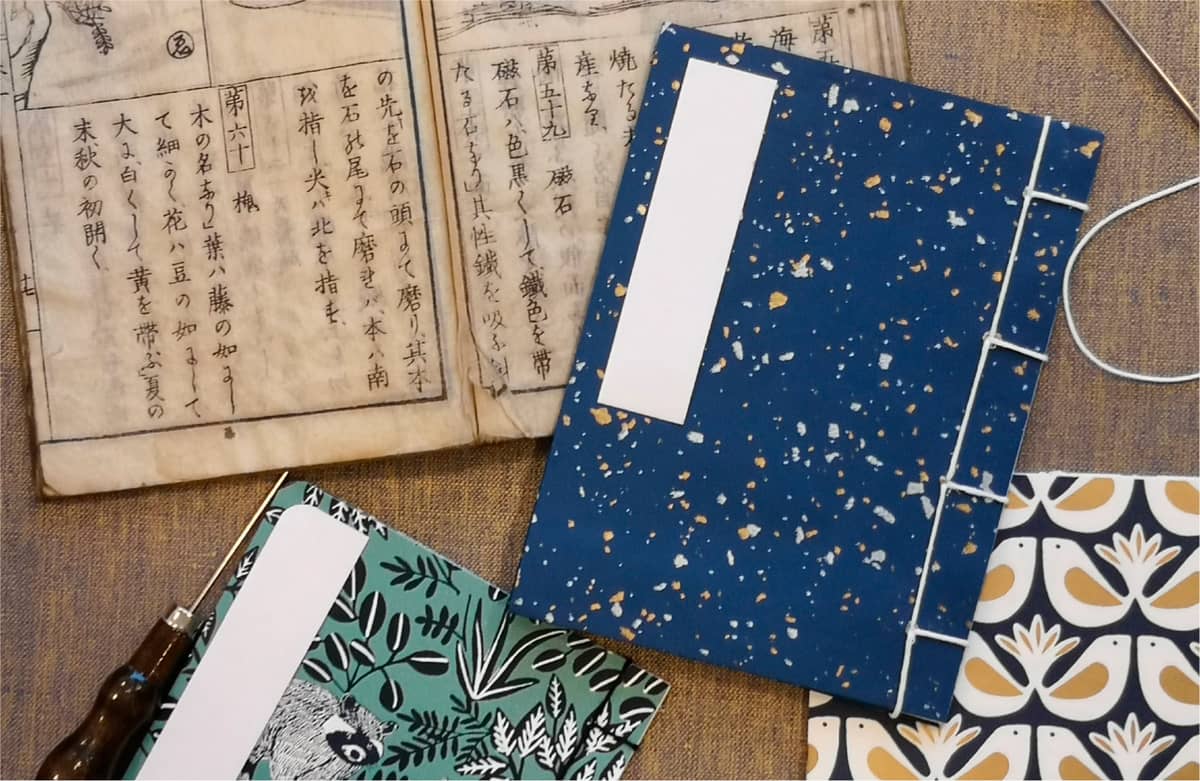 第五
海
焼たる
産
第五十九 磁石
磁石ハ色黒くして鐵色を帯
たる石なり其性鐵を吸
の先を石の頭まて磨り其本
を石の尾まて磨きハ本ハ南
を指し尖ハ北を指す、
第六十 槐
木の名なり葉ハ藤の如くし
て細かく花ハ豆の如くして
大に白くして黄を帯ぶ夏の
末、秋の初開く